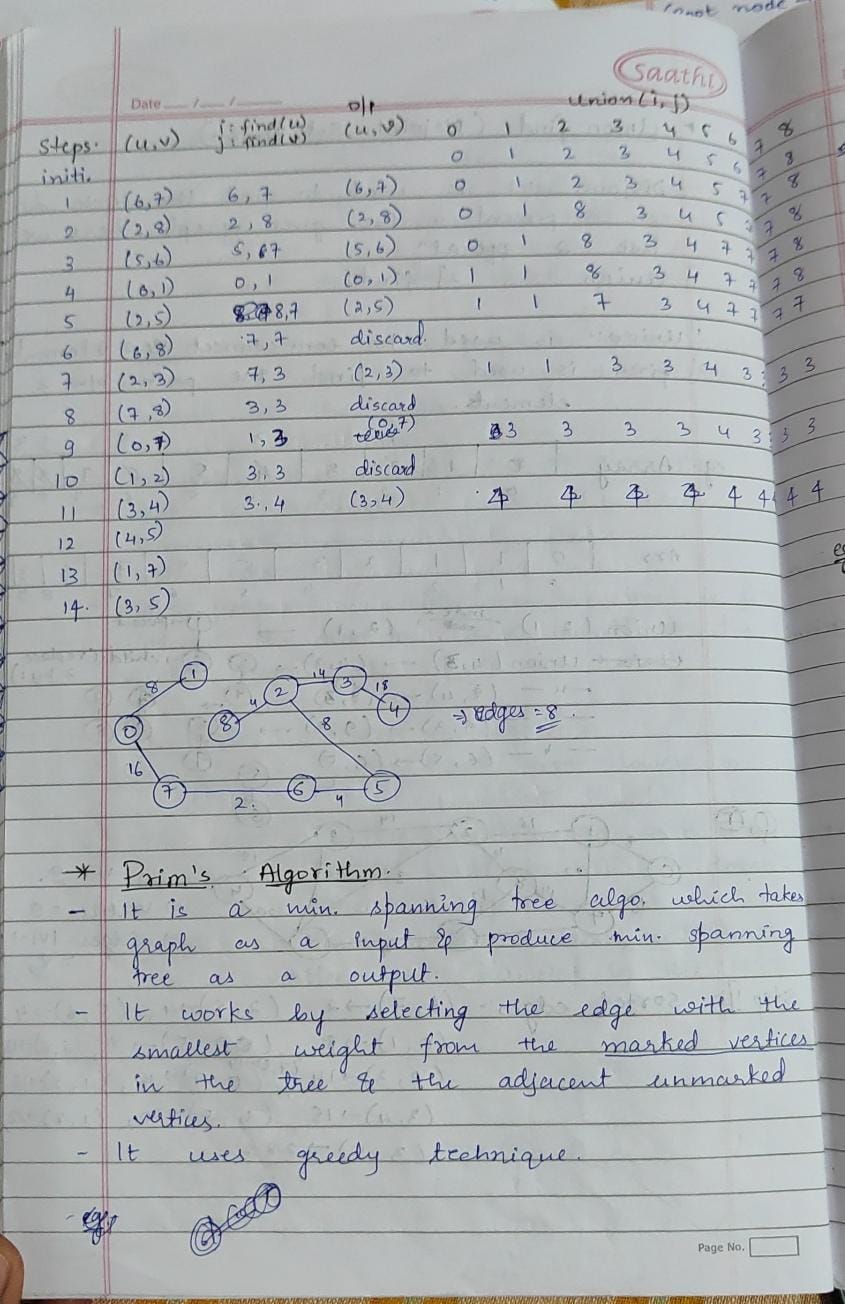 Saathi
Date __/__/____
o/p Union(i,j)
Steps. (u,v) i:find(u) (u,v) 0 1 2 3 4 5 6 7 8
j:find(v)
initi. 0 1 2 3 4 5 6 7 8
1 (6,7) 6,7 (6,7) 0 1 2 3 4 5 7 7 8
2 (2,8) 2,8 (2,8) 0 1 8 3 4 5 7 7 8
3 (5,6) 5,7 (5,6) 0 1 8 3 4 7 7 7 8
4 (0,1) 0,1 (0,1) 1 1 8 3 4 7 7 7 8
5 (2,5) 8,7 (2,5) 1 1 7 3 4 7 7 7 7
6 (6,8) 7,7 discard.
7 (2,3) 7,3 (2,3) 1 1 3 3 4 3 3 3
8 (7,8) 3,3 discard
9 (0,7) 1,3 (0,7) 3 3 3 3 4 3 3 3
10 (1,2) 3,3 discard
11 (3,4) 3,4 (3,4) 4 4 4 4 4 4 4 4
12 (4,5)
13 (1,7)
14. (3,5)
1
8 2 14 3 18
8 4 4
0 8 ⇒ edges = 8.
16
7 2. 6 4 5
* Prim's Algorithm.
- It is a min. spanning tree algo. which takes
graph as a input & produce min. spanning
tree as a output.
- It works by selecting the edge with the
smallest weight from the marked vertices
in the tree & the adjacent unmarked
vertices.
- It uses greedy technique.
- eg.
Page No.